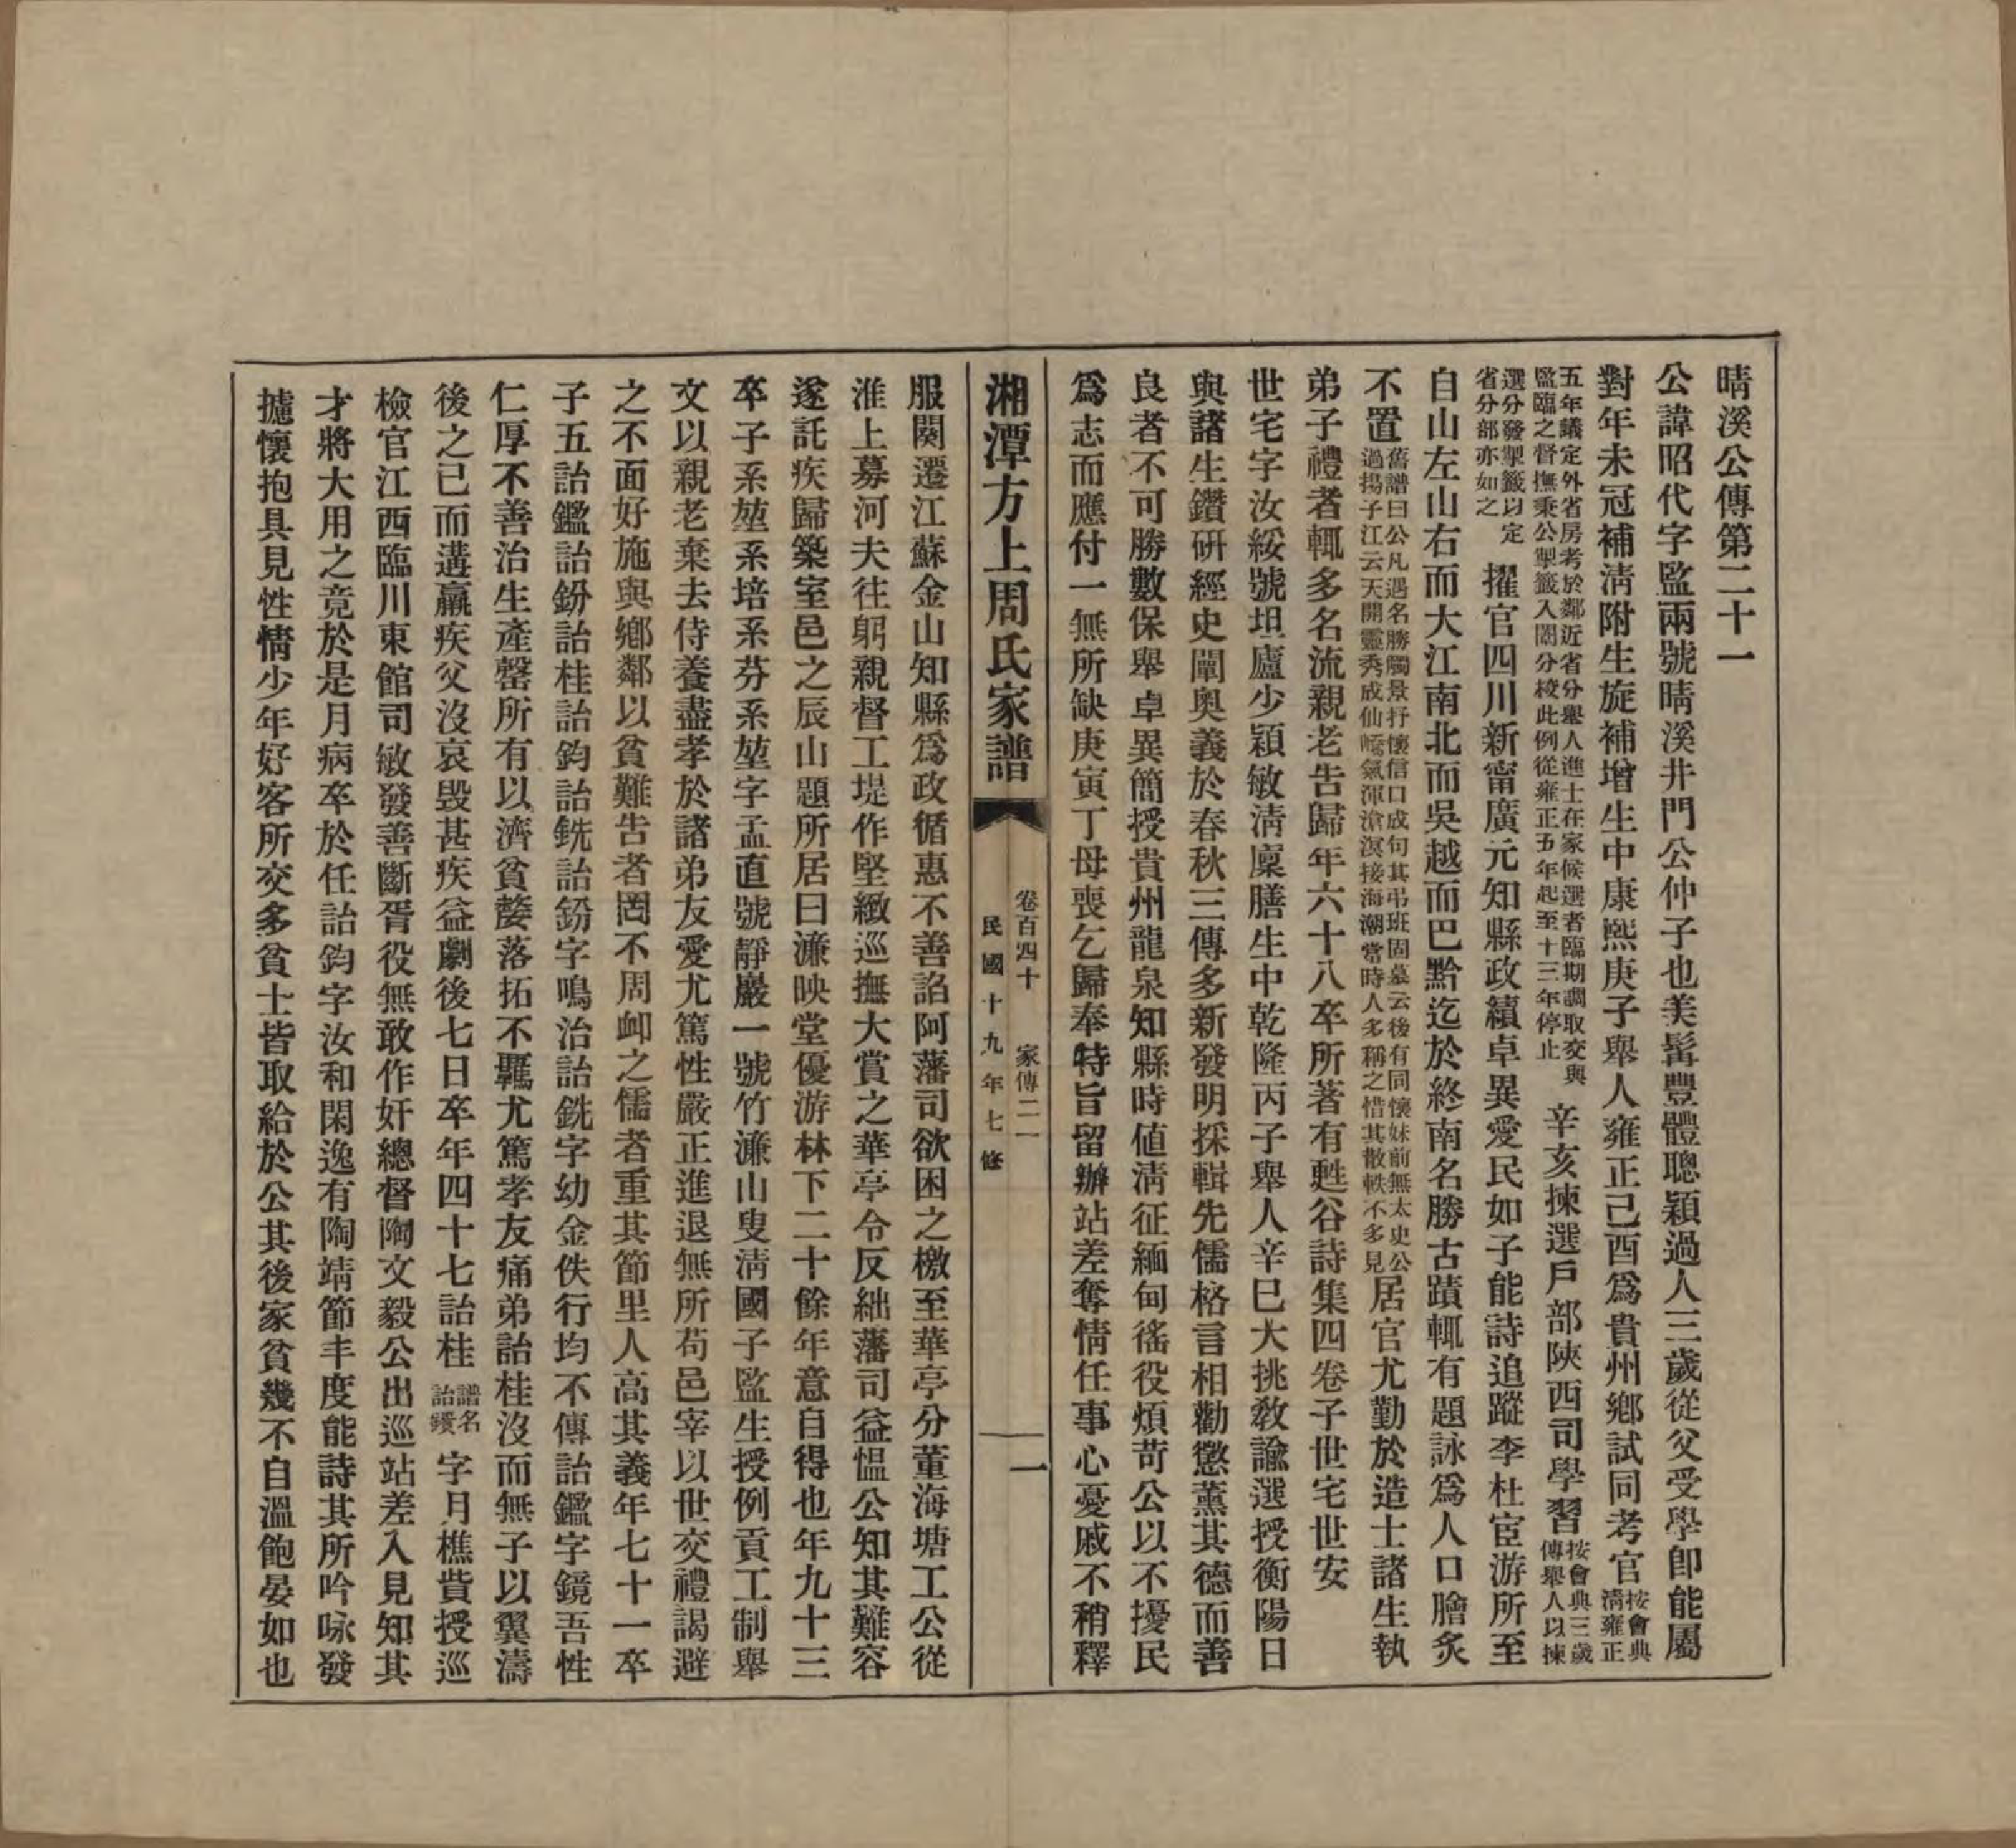 晴溪公傳第二十一
公諱昭代字監兩號晴溪井門公仲子也美髯豐體聰穎過人三歲從父受學卽能屬
對年未冠補淸附生旋補增生中康熙庚子舉人雍正己酉爲貴州鄕試同考官按會典淸雍正
五年議定外省房考於鄰近省分舉人進士在家候選者臨期調取交與監臨之督撫秉公掣籤入闈分校此例從雍正五年起至十三年停止辛亥揀選戶部陝西司學習按會典三歲傳舉人以揀
選分發掣籤以定省分部亦如之擢官四川新甯廣元知縣政績卓異愛民如子能詩追蹤李杜宦游所至
自山左山右而大江南北而吳越而巴黔迄於終南名勝古蹟輒有題詠爲人口膾炙
不置舊譜曰公凡遇名勝觸景抒懷信口成句其弔班固墓云後有同懷妹前無太史公過揚子江云天開靈秀成仙嶠氣渾滄溟接海潮當時人多稱之惜其散軼不多見居官尤勤於造士諸生執
弟子禮者輒多名流親老告歸年六十八卒所著有甦谷詩集四卷子世宅世安
世宅字汝綏號坦廬少穎敏淸廩膳生中乾隆丙子舉人辛巳大挑敎諭選授衡陽日
與諸生鑽研經史闡奧義於春秋三傳多新發明採輯先儒格言相勸懲薰其德而善
良者不可勝數保舉卓異簡授貴州龍泉知縣時値淸征緬甸徭役煩苛公以不擾民
爲志而應付一無所缺庚寅丁母喪乞歸奉特旨留辦站差奪情任事心憂戚不稍釋
湘潭方上周氏家譜
卷百四十　家傳二一
民國十九年七修
一
服闋遷江蘇金山知縣爲政循惠不善諂阿藩司欲困之檄至華亭分董海塘工公從
淮上募河夫往躬親督工堤作堅緻巡撫大賞之華亭令反絀藩司益慍公知其難容
遂託疾歸築室邑之辰山題所居曰濂映堂優游林下二十餘年意自得也年九十三
卒子系堃系培系芬系堃字孟直號靜巖一號竹濂山叟淸國子監生授例貢工制舉
文以親老棄去侍養盡孝於諸弟友愛尤篤性嚴正進退無所苟邑宰以世交禮謁避
之不面好施與鄕鄰以貧難告者罔不周卹之儒者重其節里人高其義年七十一卒
子五詒鑑詒鈖詒桂詒鈞詒銑詒鈖字鳴治詒銑字幼金佚行均不傳詒鑑字鏡吾性
仁厚不善治生產罄所有以濟貧婺落拓不羈尤篤孝友痛弟詒桂沒而無子以翼濤
後之已而遘羸疾父沒哀毀甚疾益劇後七日卒年四十七詒桂譜名詒鑽字月樵貲授巡
檢官江西臨川東館司敏發善斷胥役無敢作奸總督陶文毅公出巡站差入見知其
才將大用之竟於是月病卒於任詒鈞字汝和閑逸有陶靖節丰度能詩其所吟咏發
攄懷抱具見性情少年好客所交多貧士皆取給於公其後家貧幾不自溫飽晏如也